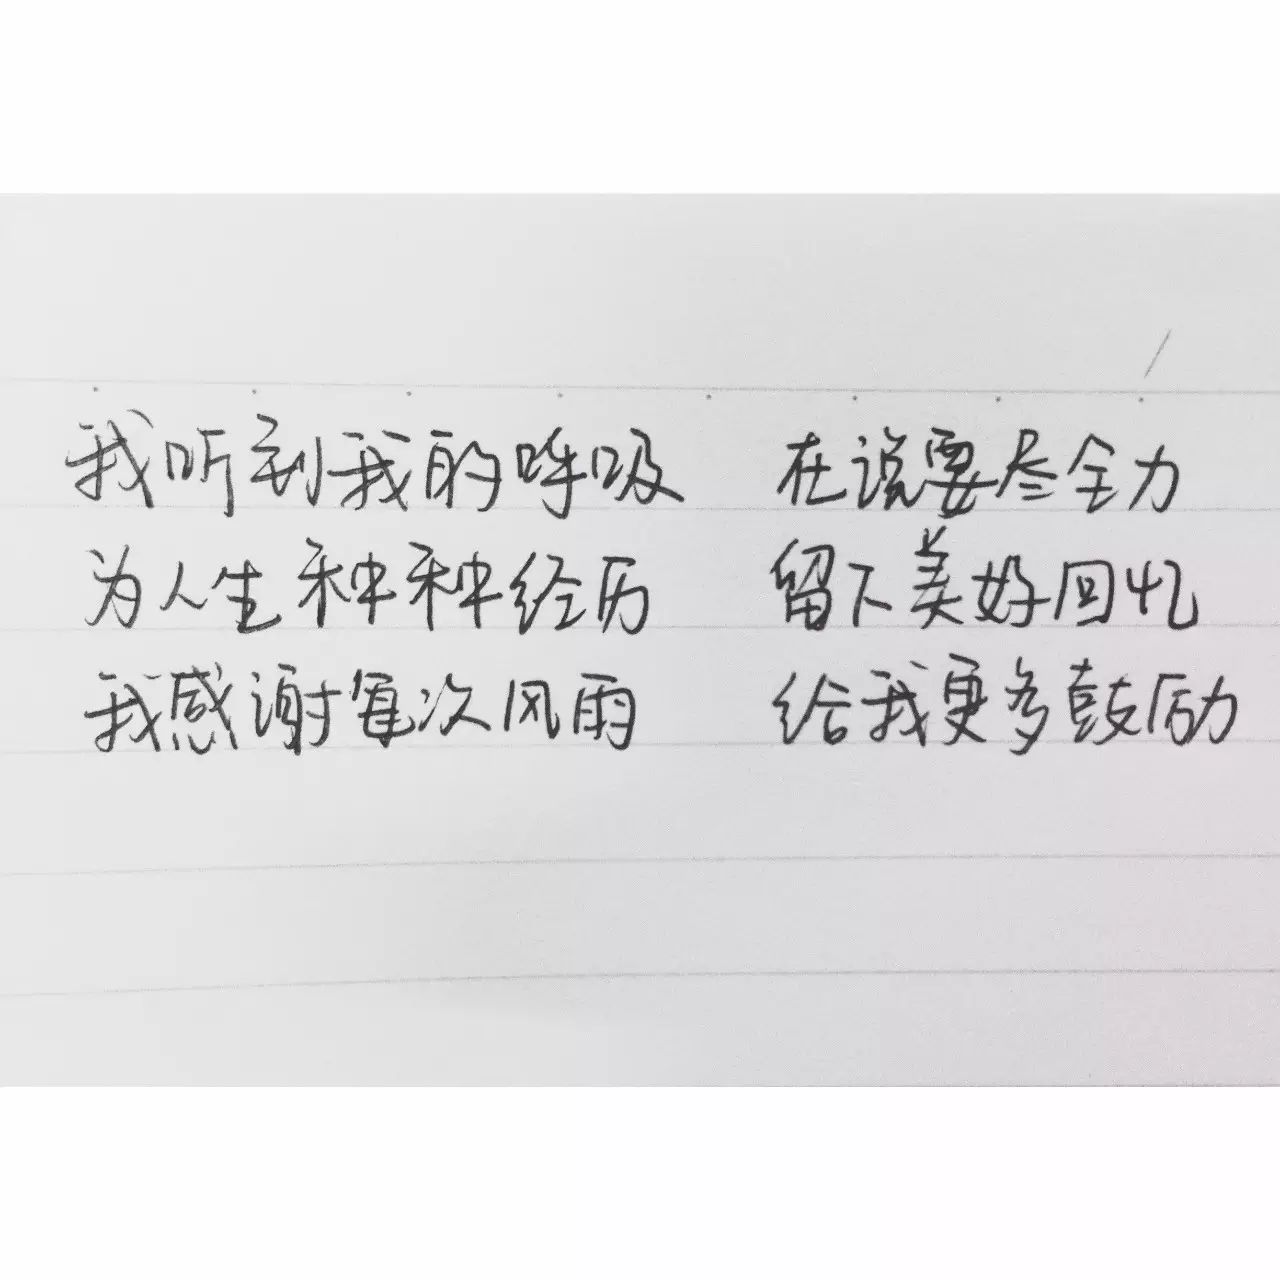 我听到我的呼吸 在说要尽全力
为人生种种经历 留下美好回忆
我感谢每次风雨 给我更多鼓励